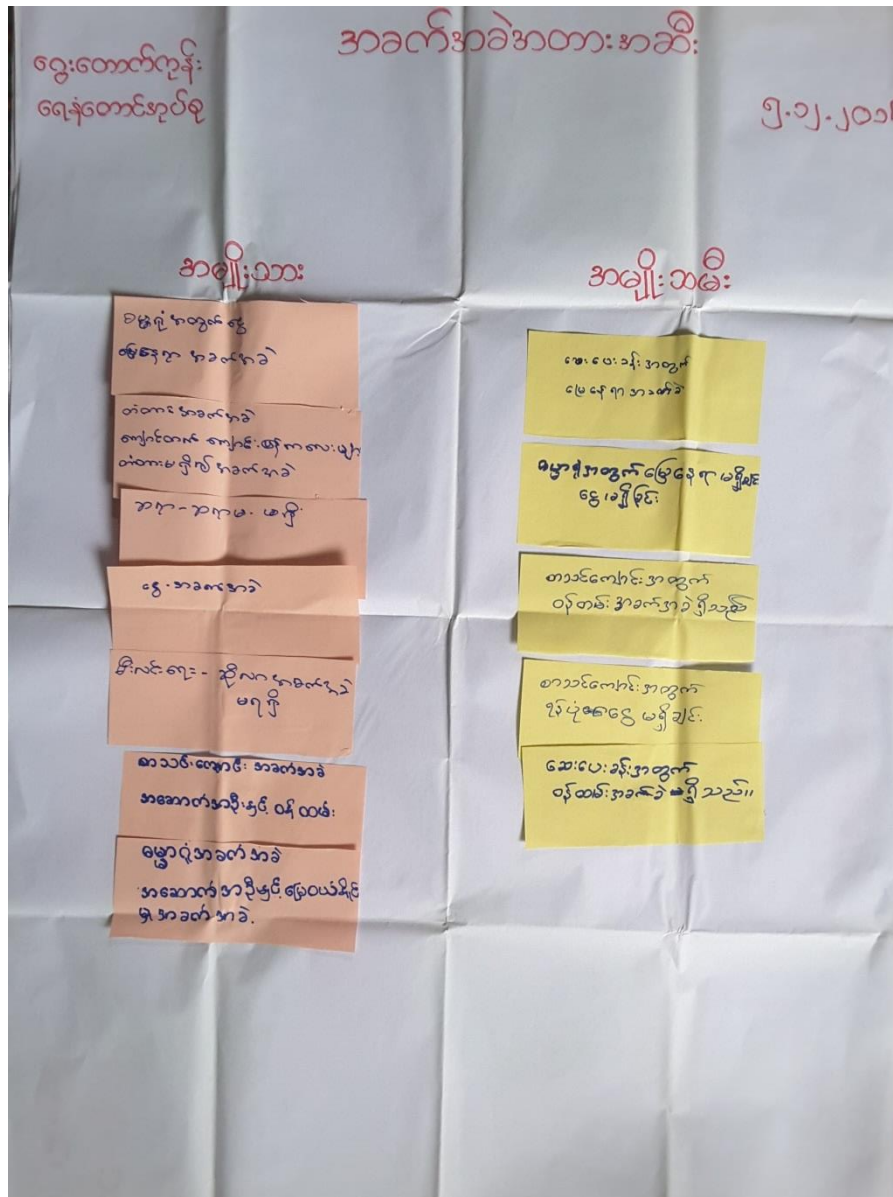 အခက်အခဲအတားအဆီး
ဂွေးတောက်ကုန်း
ရေနံတောင်အုပ်စု
၅.၁၂.၂၀၁
အမျိုးသား
ဓမ္မာရုံအတွက် ငွေ
မြေနေရာ အခက်အခဲ
တံတား အခက်အခဲ
ကျောင်းတက် ကျောင်း ကလေးများ
တံတားမရှိ၍ အခက်အခဲ
ဆရာ - ဆရာမ မရှိ
ငွေ အခက်အခဲ
မီးလင်းရေး - ဆိုလာအခက်အခဲ
မရရှိ
စာသင်ကျောင်း အခက်အခဲ
အဆောက်အဦးနှင့် ဝန်ထမ်း
ဓမ္မာရုံအခက်အခဲ
အဆောက်အဦနှင့် မြေဝယ်နိုင်
မှုအခက်အခဲ.
အမျိုးသမီး
ဆေးပေးခန်းအတွက်
မြေနေရာအခက်ခဲ
ဓမ္မာရုံအတွက် မြေနေရာ မရှိချင်း
ငွေမရှိခြင်း
စာသင်ကျောင်းအတွက်
ဝန်ထမ်းအခက်အခဲရှိသည်
စာသင်ကျောင်းအတွက်
ရန်ပုံငွေ မရှိချင်း
ဆေးပေးခန်းအတွက်
ဝန်ထမ်းအခက်ခဲရှိသည်။